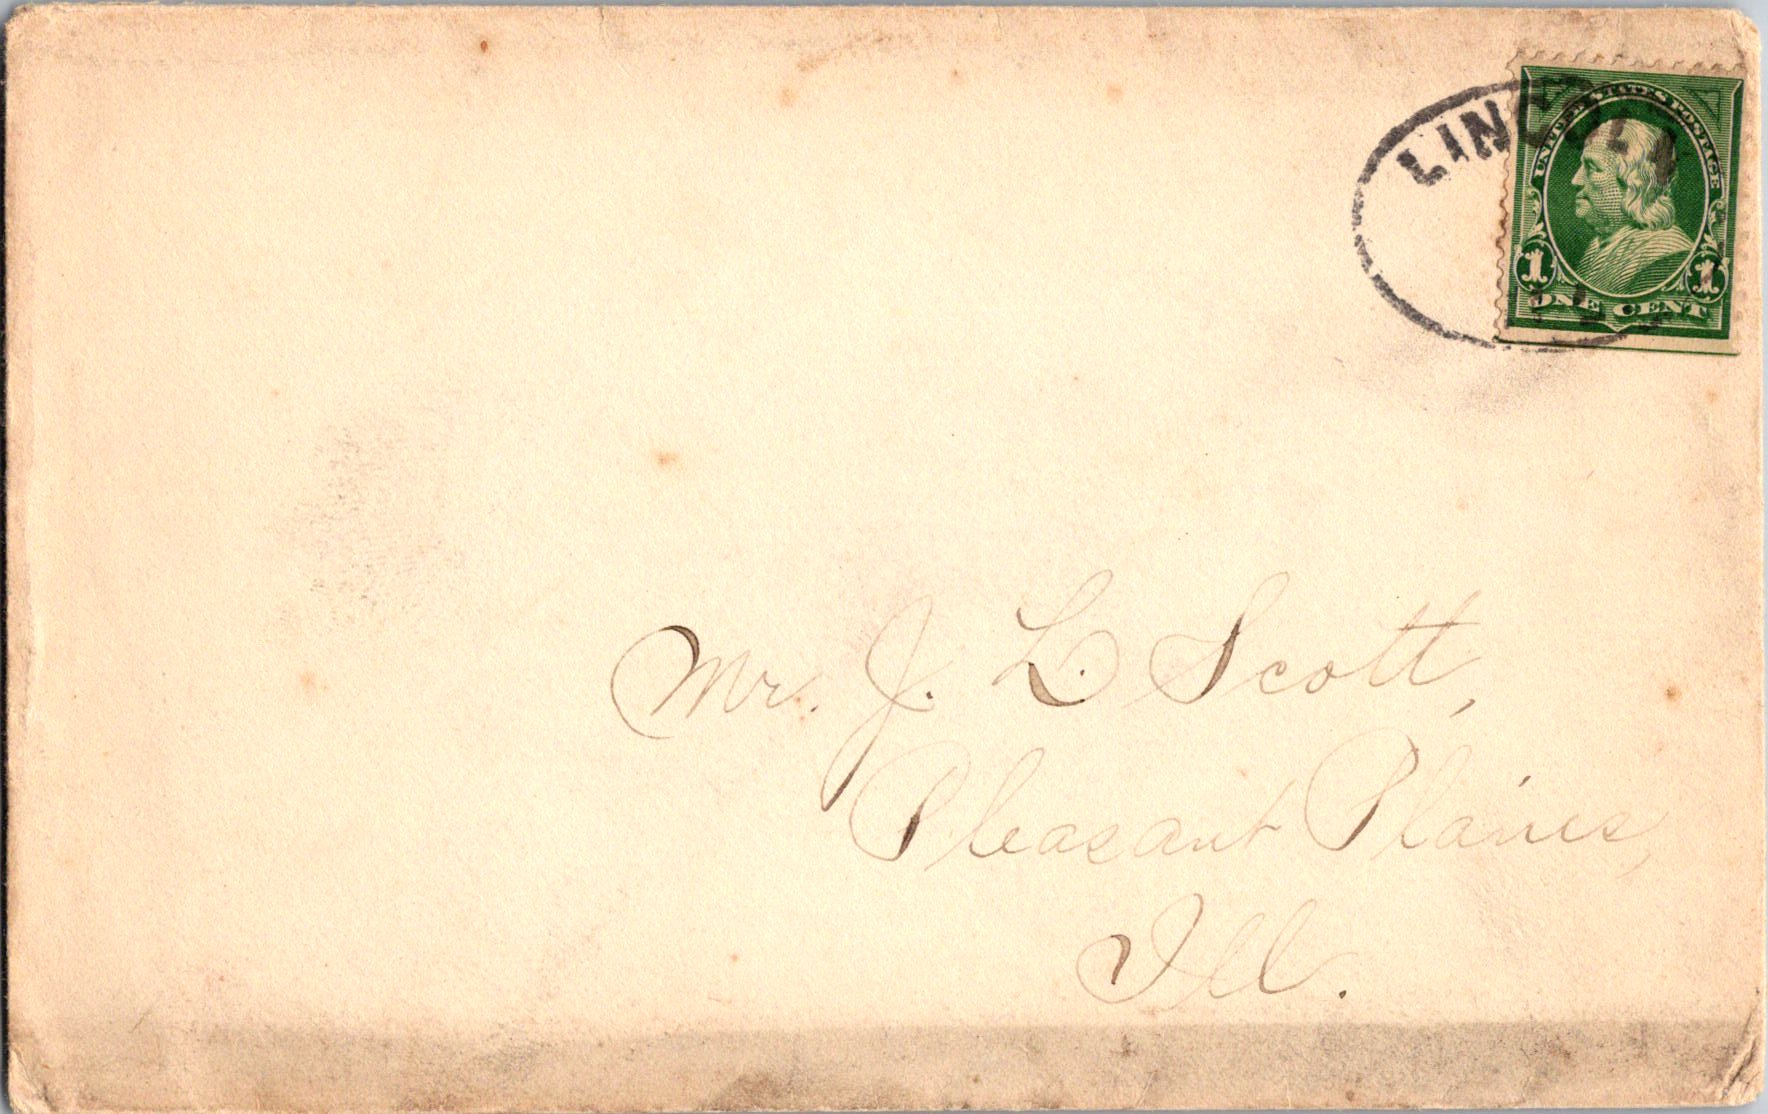 LINCOLN
UNITED STATES POSTAGE
1 1
ONE CENT
Mr. J. L. Scott,
Pleasant Plains,
Ill.